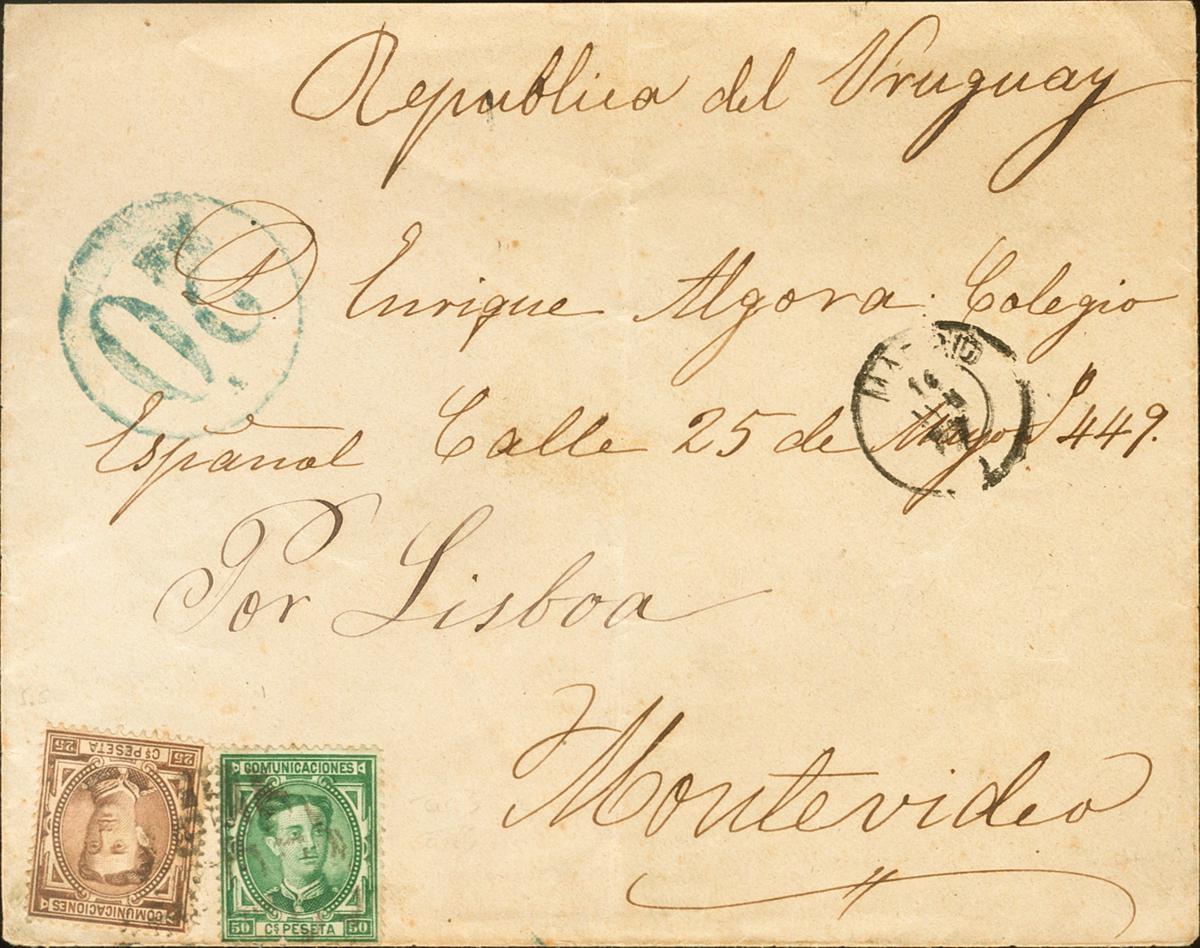 Republica del Uruguay
20
D. Enrique Algora. Colegio
MADRID
Español Calle 25 de Mayo 449.
Por Lisboa
Montevideo
25 Cs PESETA 25
COMUNICACIONES
COMUNICACIONES
50 Cs PESETA 50